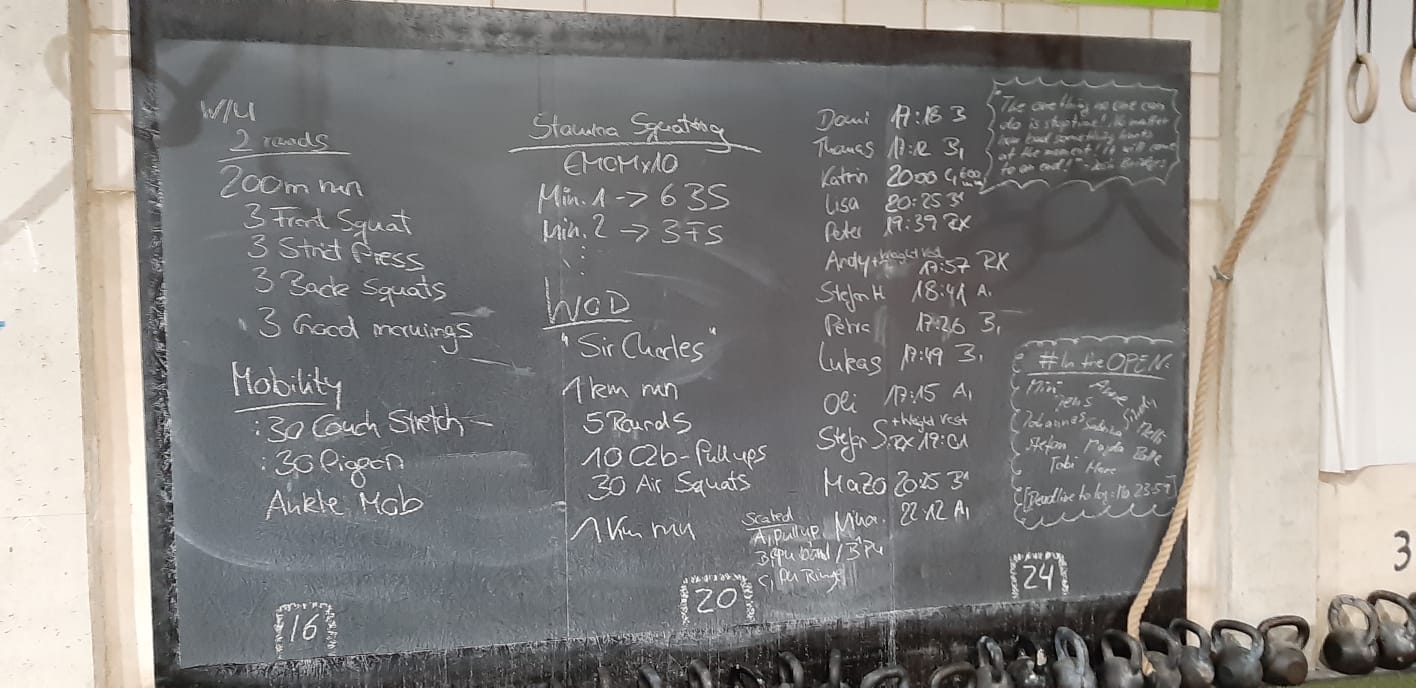 W/U
2 rounds
200m run
3 Front Squat
3 Strict Press
3 Back Squats
3 Good mornings
Mobility
:30 Couch Stretch
:30 Pigeon
Ankle Mob
16
Stamina Squating
EMOMx10
Min. 1 -> 6 BS
Min. 2 -> 3 FS
WOD
"Sir Charles"
1 km run
5 Rounds
10 C2b-Pullups
30 Air Squats
1 Km run
Scaled
A, Pullup
B, PU band / BPU
C, PU Rings
20
Domi 17:18 B
Thomas 17:12 B,
Katrin 20:00 C, 600
Lisa 20:25
Peter 19:39 RX
Andy + Weight Vest 17:57 RX
Stefan H 18:41 A.
Petra 17:26 B,
Lukas 17:49 B.
Oli 17:15 A,
Stefan S. + Weight Vest RX 19:01
Mazo 20:25
22:12 A,
"The one thing no one can
do is stop time! No matter
how hard something hurts
at the moment! It will come
to an end!"
#In the OPEN:
Mini
Jens
Johannes Sabrina Melli
Stefan
Tobi Marc
[Deadline to log: Mo 23:59]
24
3